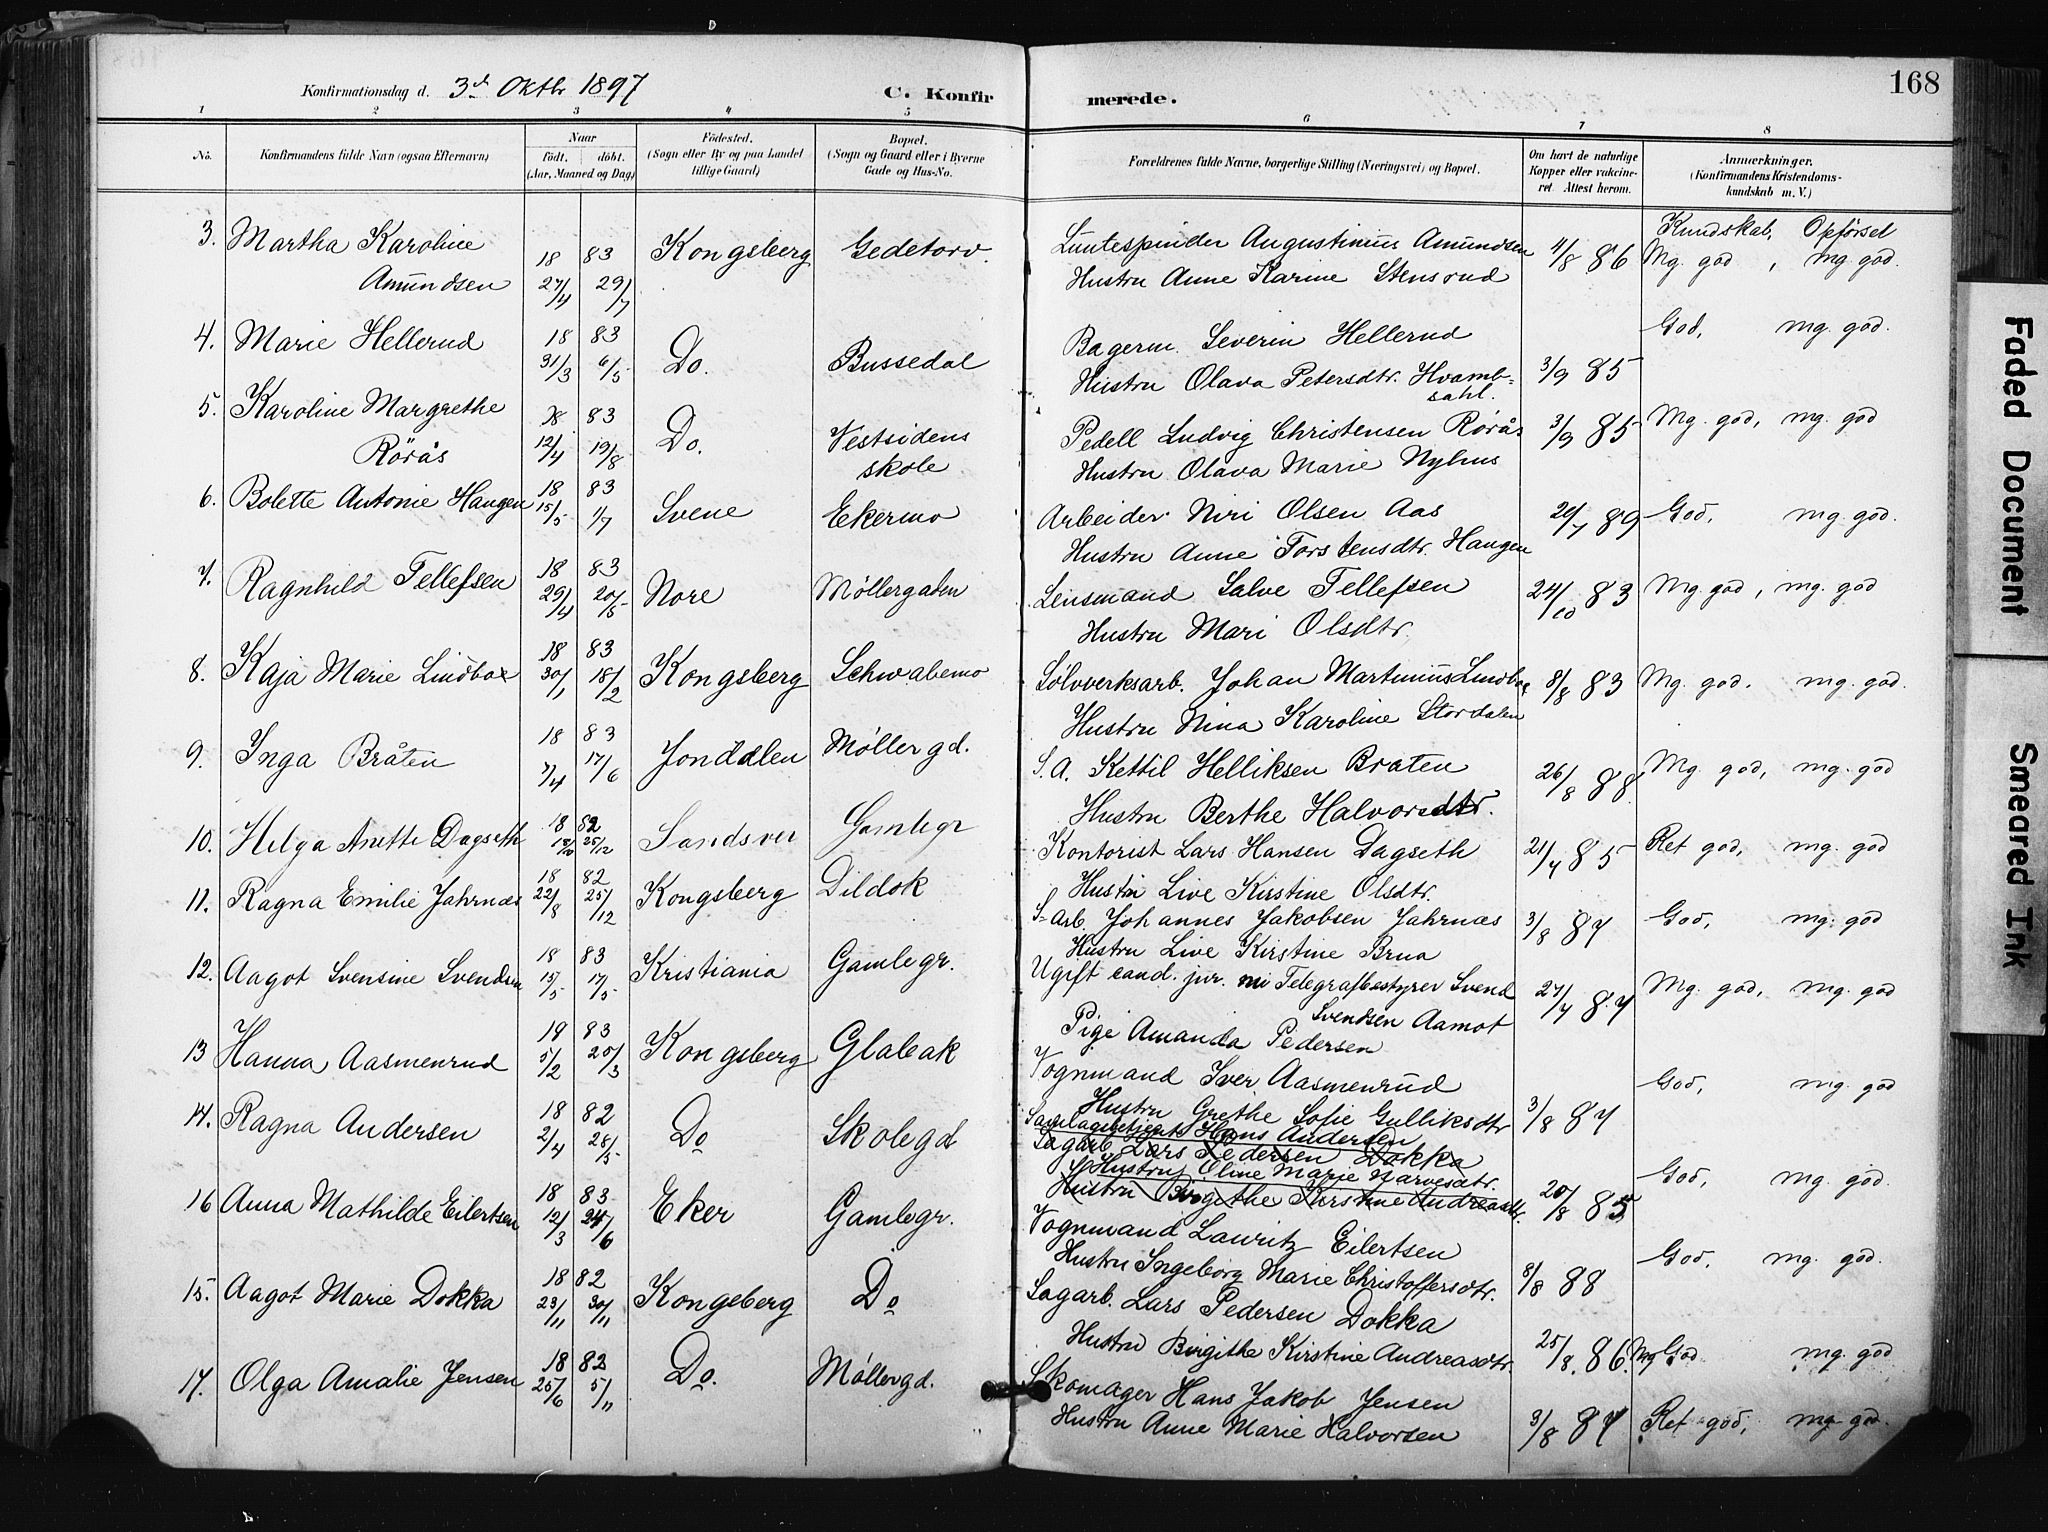 168
Konfirmationsdag d. 3d Oktbr 1897 C. Konfirmerede.
1 2 3 4 5 6 7 8
No. Konfirmandens fulde Navn (ogsaa Efternavn) Naar født. døbt. (Aar, Maaned og Dag) Fødested. (Sogn eller By og paa Landet tillige Gaard) Bopæl. (Sogn og Gaard eller i Byerne Gade og Hus-No. Forældrenes fulde Navne, borgerlige Stilling (Næringsvei) og Bopæl. Om havt de naturlige Kopper eller vakcineret. Attest herom. Anmærkninger. (Konfirmandens Kristendomskundskab m. V.)
Kundskab, Opførsel
3. Martha Karoline Amundsen 18 83 27/4 29/7 Kongsberg Gedetorv. Luntespinder Augustinus Amundsen 4/8 86 Mg. god, mg. god.
Hustru Anne Karine Stensrud
4. Marie Hellerud 18 83 31/3 6/5 Do. Bussedal Bagerm. Severin Hellerud 3/9 85 God, mg. god.
Hustru Olava Petersdtr. Hvambsahl.
5. Karoline Margrethe Rørås 18 83 12/4 19/8 Do. Vestsidens skole Pedell Ludvig Christensen Rørås 3/9 85 Mg. god, mg. god
Hustru Olava Marie Nyhus
6. Bolette Antonie Haugen 18 83 15/5 1/7 Svene Ekermo Arbeider Niri Olsen Aas 20/7 89 God, mg. god.
Hustru Anne Torstensdtr. Haugen
7. Ragnhild Tellefsen 18 83 29/4 20/5 Nore Møllergaten Lensmand Salve Tellefsen 24/10 83 Mg. god, mg. god
Hustru Mari Olsdtr.
8. Kaja Marie Lindboe 18 83 30/1 18/2 Kongsberg Schwabemo Sølvverksarb. Johan Martinius Lindboe 8/8 83 Mg. god. mg. god.
Hustru Nina Karoline Stordalen
9. Inga Bråten 18 83 7/4 17/6 Jonddlen Møllergd. S. A. Kettil Helliksen Braten 26/8 88 Mg. god, mg. god
Hustru Berthe Halvorsdtr.
10. Helga Anette Dagseth 18 82 25/12 Sandsver Gamlegr Kontorist Lars Hansen Dagseth 21/4 85 Ret god, mg. god
Hustru Live Kirstine Olsdtr.
11. Ragna Emilie Jahrnæs 18 82 22/8 25/12 Kongsberg Dildok S. Arb. Johannes Jakobsen Jahrnæs 3/8 87 God, mg. god
Hustru Live Kirstine Brua
12. Aagot Svensine Svendsen 18 83 15/5 17/5 Kristiania Gamlegr. Ugift cand. jur. nu Telegrafbestyrer Svend Svendsen Aamot 27/4 87 Mg. god, mg. god
Pige Amanda Pedersen
13 Hanna Aasmenrud 18 83 5/2 25/3 Kongsberg Glabak Vognmand Iver Aasmenrud 3/8 87 God, mg. god
Hustru Grethe Sofie Gulliksdtr
14. Ragna Andersen 18 82 2/4 28/5 Do Skolegd Samlagsbetjent Hans Andersen 20/8 85 God, mg. god.
Sagarb. Lars Pedersen Dokka
Hustru Oline Marie Narvesdtr.
Hustru Birgithe Kirstine Andreasdtr.
16 Anna Mathilde Eilertsen 18 83 12/3 24/6 Eker Gamlegr. Vognmand Lauritz Eilertsen 8/8 88 God, mg. god.
Hustru Ingeborg Marie Christoffersdtr.
15. Aagot Marie Dokka 18 82 23/11 30/11 Kongsberg Do Sagarb. Lars Pedersen Dokka 25/8. 86. Mg God mg. god
Hustru Birgithe Kirstine Andreasdtr.
17. Olga Amalie Jensen 18 82 25/6 5/11 Do. Møllergd. Skomager Hans Jakob Jensen 3/8 87 Ret god, mg. god.
Hustru Anne Marie Halvorsen
Faded Document
Smeared Ink